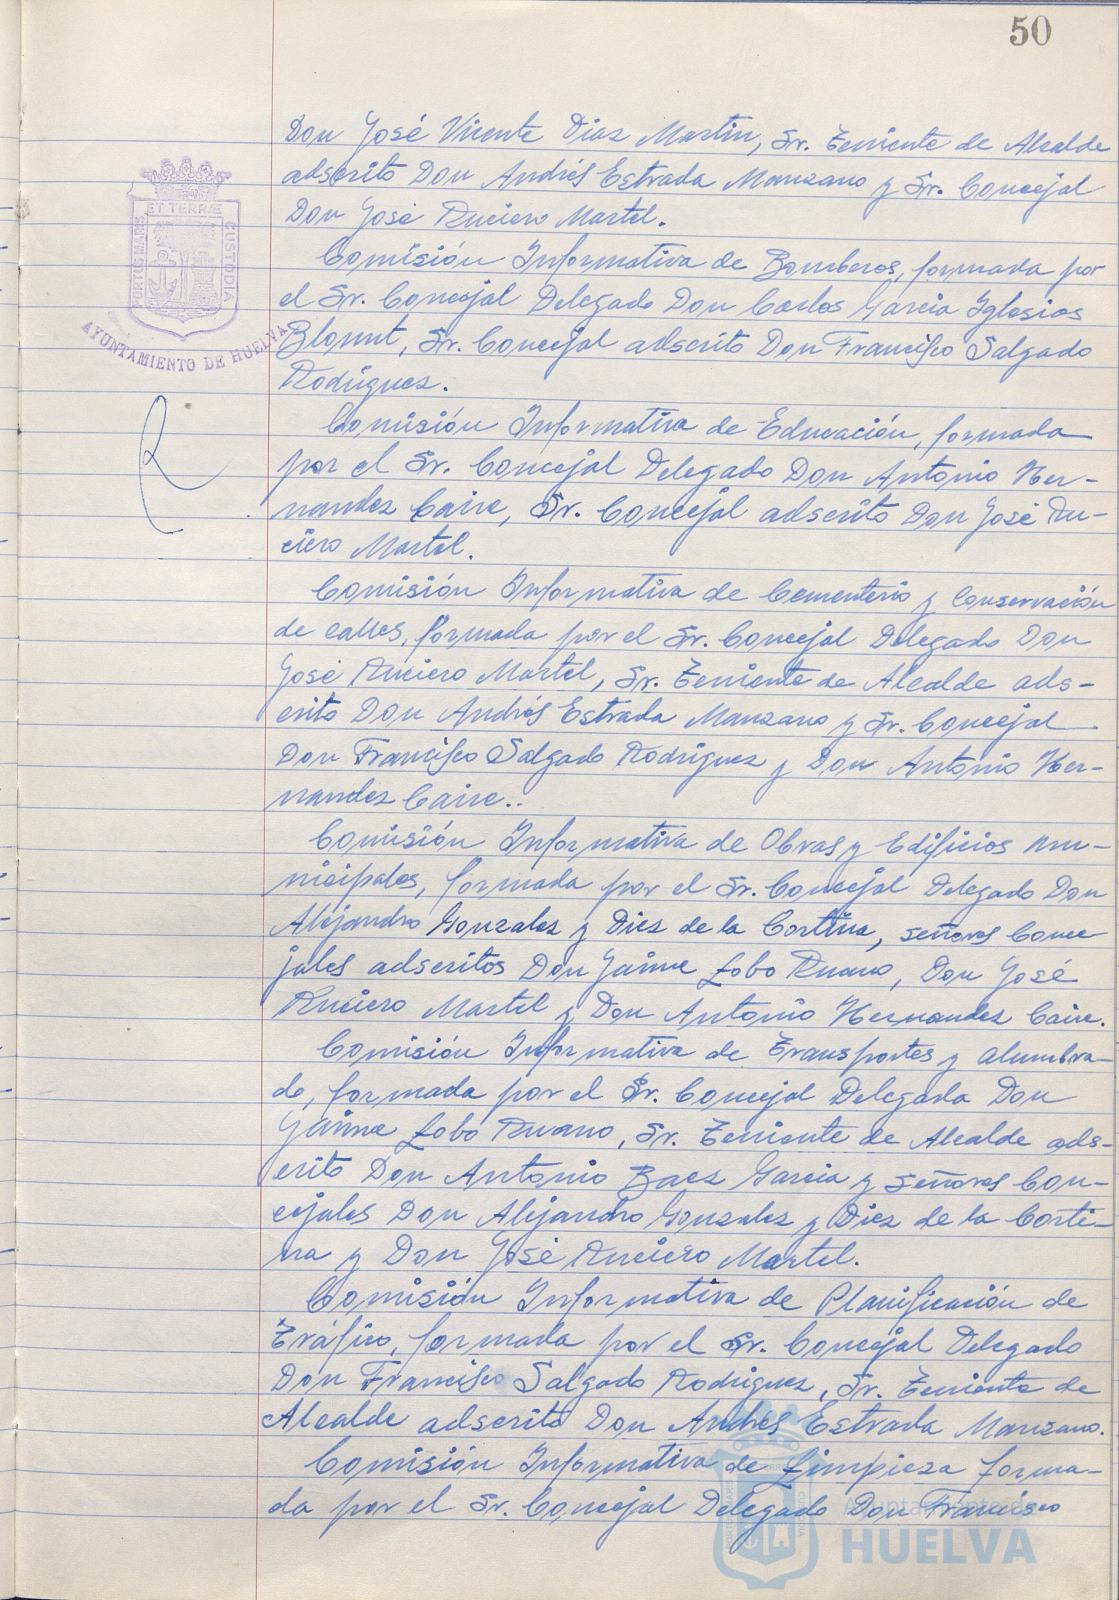 50
Don José Vicente Diaz Martin, Sr. Teniente de Alcalde
adscrito Don Andrés Estrada Manzano y Sr. Concejal
Don José Ruciero Martel.
ET TERRÆ
PORTUS MARIS
CUSTODIA
AYUNTAMIENTO DE HUELVA
Comisión Informativa de Bomberos, formada por
el Sr. Concejal Delegado Don Carlos Garcia Iglesias
Blount, Sr. Concejal adscrito Don Francisco Salgado
Rodriguez.
Comisión Informativa de Educación, formada
por el Sr. Concejal Delegado Don Antonio Her-
nandez Caire, Sr. Concejal adscrito Don José Ru-
ciero Martel.
Comisión Informativa de Cementerio y Conservación
de calles, formada por el Sr. Concejal Delegado Don
José Ruciero Martel, Sr. Teniente de Alcalde ads-
crito Don Andrés Estrada Manzano y Sr. Concejal
Don Francisco Salgado Rodriguez y Don Antonio Her-
nandez Caire..
Comisión Informativa de Obras y Edificios mu-
nicipales, formada por el Sr. Concejal Delegado Don
Alejandro Gonzalez y Diez de la Cortina, señores Conce
jales adscritos Don Jaime Lobo Ruano, Don José
Ruciero Martel y Don Antonio Hernandez Caire.
Comisión Informativa de Transportes y alumbra-
do, formada por el Sr. Concejal Delegada Don
Jaime Lobo Ruano, Sr. Teniente de Alcalde ads-
crito Don Antonio Baez Garcia y señores Con-
cejales Don Alejandro Gonzalez y Diez de la Corti-
na y Don José Ruciero Martel.
Comisión Informativa de Planificación de
Tráfico, formada por el Sr. Concejal Delegado
Don Francisco Salgado Rodriguez, Sr. Teniente de
Alcalde adscrito Don Andrés Estrada Manzano.
Comisión Informativa de Limpieza forma-
da por el Sr. Concejal Delegado Don Francisco
Ayuntamiento de
HUELVA